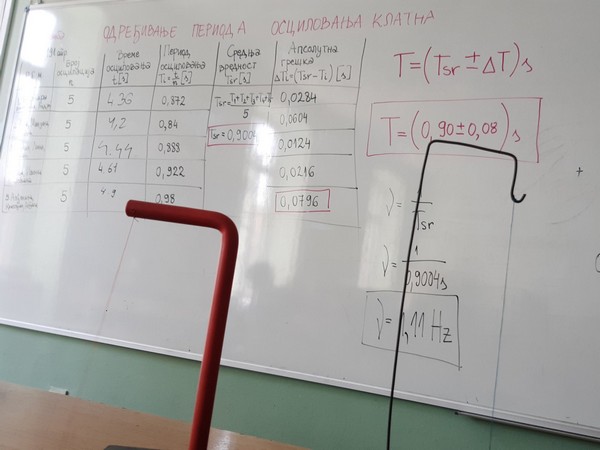 ОДРЕЂИВАЊЕ ПЕРИОДА ОСЦИЛОВАЊА КЛАТНА
Број осцилација n
Време осциловања t[s]
Период осциловања T₁=t/n [s]
Средња вредност Tsr[s]
Апсолутна грешка ΔT₁=(Tsr-T₁) [s]
5 4.36 0,872 0,0284
5 4,2 0,84 0,0604
5 4.44 0,888 0,0124
5 4.61 0,922 0,0216
5 4.9 0.98 0,0796
5
Tsr=0,9004
T=(Tsr±ΔT)s
T=(0,90±0,08)s
ν=
Tsr
ν=1/0,9004s
ν=1,11 Hz